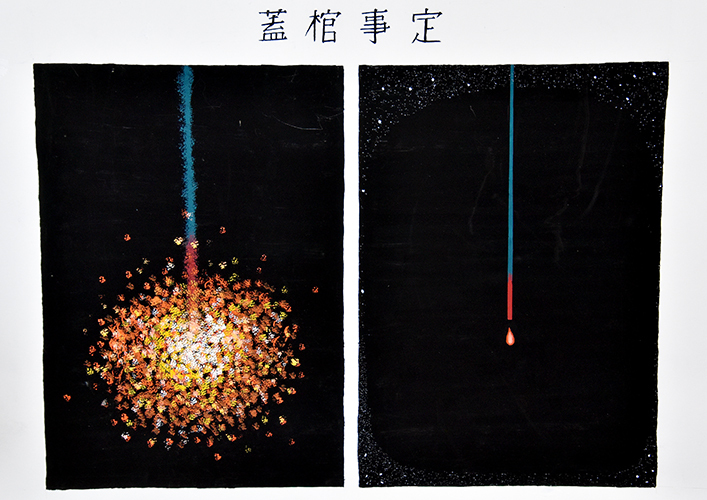 蓋棺事定